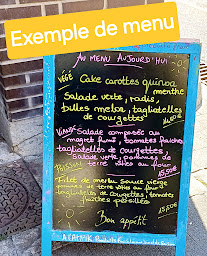 Exemple de menu
AU MENU AUJOURD'HUI
VÉGÉ Cake carottes quinoa
menthe
Salade verte, radis,
billes melon, tagliatelles
de courgettes
Salade composée au
magret fumé, tomates fraîches
tagliatelles de courgettes,
Salade verte, pommes de
terre rôties au four
15,50€
Filet de merlu sauce vierge
pommes de terre rôties au four
tagliatelles de courgettes, tomates
fraîches persillées
15,50€
Bon appétit